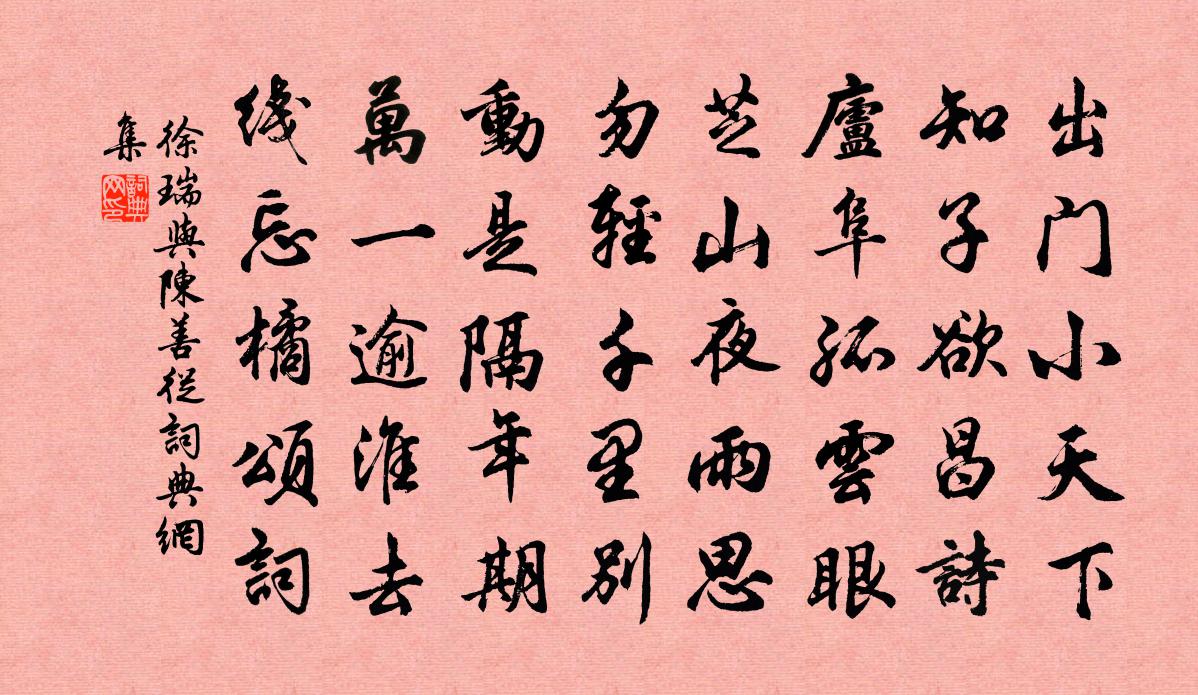 出门小天下
知子欲昌詩
廬阜孤雲眼
芝山夜雨思
勿輕千里別
動是隔年期
萬一逾淮去
线忘橘頌詞
徐瑞與陳善從詞典網
集
詞典
网印